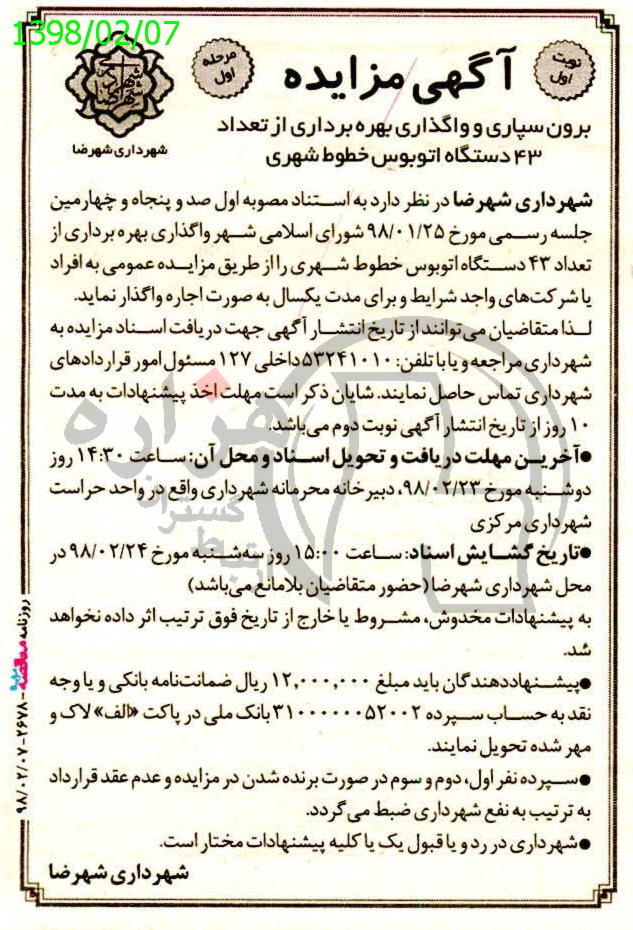 1398/02/07
نوبت اول
آگهی مزایده
مرحله اول
شهرداری شهرضا
برون سپاری و واگذاری بهره برداری از تعداد
۴۳ دستگاه اتوبوس خطوط شهری
شهرداری شهرضا در نظر دارد به استناد مصوبه اول صد و پنجاه و چهارمین
جلسه رسمی مورخ ۹۸/۰۱/۲۵ شورای اسلامی شهر واگذاری بهره برداری از
تعداد ۴۳ دستگاه اتوبوس خطوط شهری را از طریق مزایده عمومی به افراد
یا شرکت‌های واجد شرایط و برای مدت یکسال به صورت اجاره واگذار نماید.
لذا متقاضیان می توانند از تاریخ انتشار آگهی جهت دریافت اسناد مزایده به
شهرداری مراجعه و یا با تلفن: ۵۳۲۴۱۰۱۰ داخلی ۱۲۷ مسئول امور قراردادهای
شهرداری تماس حاصل نمایند. شایان ذکر است مهلت اخذ پیشنهادات به مدت
۱۰ روز از تاریخ انتشار آگهی نوبت دوم می‌باشد.
●آخرین مهلت دریافت و تحویل اسناد و محل آن: ساعت ۱۴:۳۰ روز
دوشنبه مورخ ۹۸/۰۲/۲۳، دبیرخانه محرمانه شهرداری واقع در واحد حراست
شهرداری مرکزی
●تاریخ گشایش اسناد: ساعت ۱۵:۰۰ روز سه‌شنبه مورخ ۹۸/۰۲/۲۴ در
محل شهرداری شهرضا (حضور متقاضیان بلامانع می‌باشد)
به پیشنهادات مخدوش، مشروط یا خارج از تاریخ فوق ترتیب اثر داده نخواهد
شد.
●پیشنهاددهندگان باید مبلغ ۱۲,۰۰۰,۰۰۰ ریال ضمانت‌نامه بانکی و یا وجه
نقد به حساب سپرده ۳۱۰۰۰۰۰۰۵۲۰۰۲ بانک ملی در پاکت «الف» لاک و
مهر شده تحویل نمایند.
●سپرده نفر اول، دوم و سوم در صورت برنده شدن در مزایده و عدم عقد قرارداد
به ترتیب به نفع شهرداری ضبط می گردد.
●شهرداری در رد و یا قبول یک یا کلیه پیشنهادات مختار است.
شهرداری شهرضا
هزاره
گستران
ارتباط
روزنامه مناقصه مزایده - ۲۶۷۸ - ۹۸/۰۲/۰۷